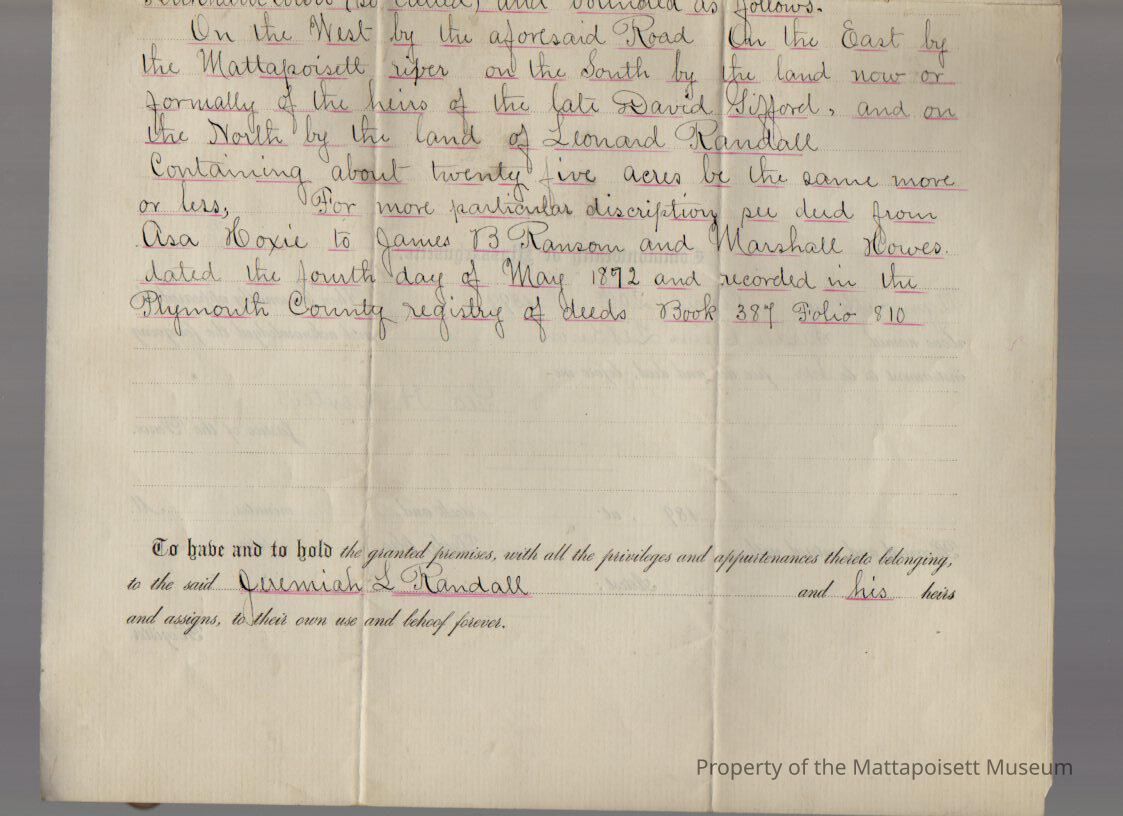 (so called) and bounded as follows.
On the West by the aforesaid Road On the East by
the Mattapoisett river on the South by the land now or
formally of the heirs of the late David Gifford, and on
the North by the land of Leonard Randall
Containing about twenty five acres be the same more
or less, For more particular discription see deed from
Asa Hoxie to James B Ransom and Marshall Howes.
dated the fourth day of May 1872 and recorded in the
Plymouth County registry of deeds Book 387 Folio 810
To have and to hold the granted premises, with all the privileges and appurtenances thereto belonging,
to the said Jeremiah L Randall and his heirs
and assigns, to their own use and behoof forever.
Property of the Mattapoisett Museum